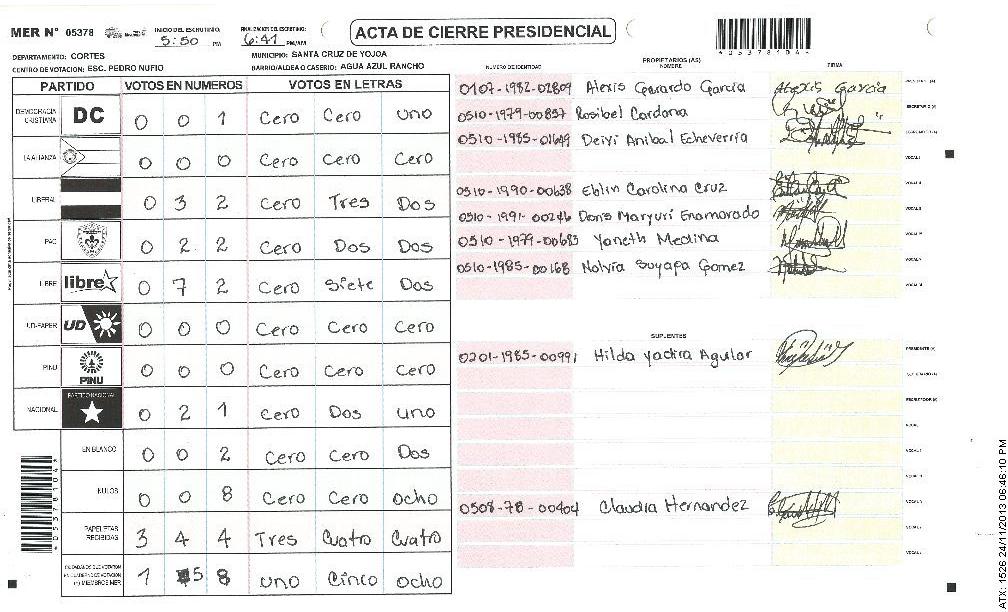 MER N° 05378
INICIO DEL ESCRUTINIO: 5:50 PM
FINALIZACION DEL ESCRUTINIO: 6:41 PM/AM
ACTA DE CIERRE PRESIDENCIAL
405378104
DEPARTAMENTO: CORTES
MUNICIPIO: SANTA CRUZ DE YOJOA
CENTRO DE VOTACION: ESC. PEDRO NUFIO
BARRIO/ALDEA O CASERIO: AGUA AZUL RANCHO
PARTIDO VOTOS EN NUMEROS VOTOS EN LETRAS
DEMOCRACIA CRISTIANA DC 0 0 1 Cero Cero uno
LA ALIANZA 0 0 0 Cero Cero Cero
LIBERAL 0 3 2 Cero Tres Dos
PAC 0 2 2 Cero Dos Dos
LIBRE libre 0 7 2 Cero Siete Dos
UD-FAPER UD 0 0 0 Cero Cero Cero
PINU PINU 0 0 0 Cero Cero Cero
NACIONAL PARTIDO NACIONAL 0 2 1 Cero Dos uno
EN BLANCO 0 0 2 Cero Cero Dos
NULOS 0 0 8 Cero Cero ocho
PAPELETAS RECIBIDAS 3 4 4 Tres Cuatro Cuatro
CIUDADANOS QUE VOTARON EN CUADERNO DE VOTACION (+) MIEMBROS MER 1 5 8 uno Cinco ocho
NUMERO DE IDENTIDAD PROPIETARIOS (AS) NOMBRE FIRMA
0107-1982-02809 Alexis Gerardo Garcia Alexis Garcia
0510-1979-00857 Rosibel Cardona
0510-1985-01649 Deivi Anibal Echeverria
0510-1990-00638 Eblin Carolina Cruz
0510-1991-00246 Doris Maryuri Enamorado
0510-1979-00683 Yaneth Medina
0510-1985-00168 Nolvia Suyapa Gomez
SUPLENTES
0201-1985-00991 Hilda yadira Aguilar
0508-78-00404 Claudia Hernandez
ATX: 1526 24/11/2013 06:46:10 PM